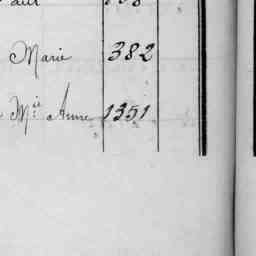 Marie 382
Mie Anne 1351